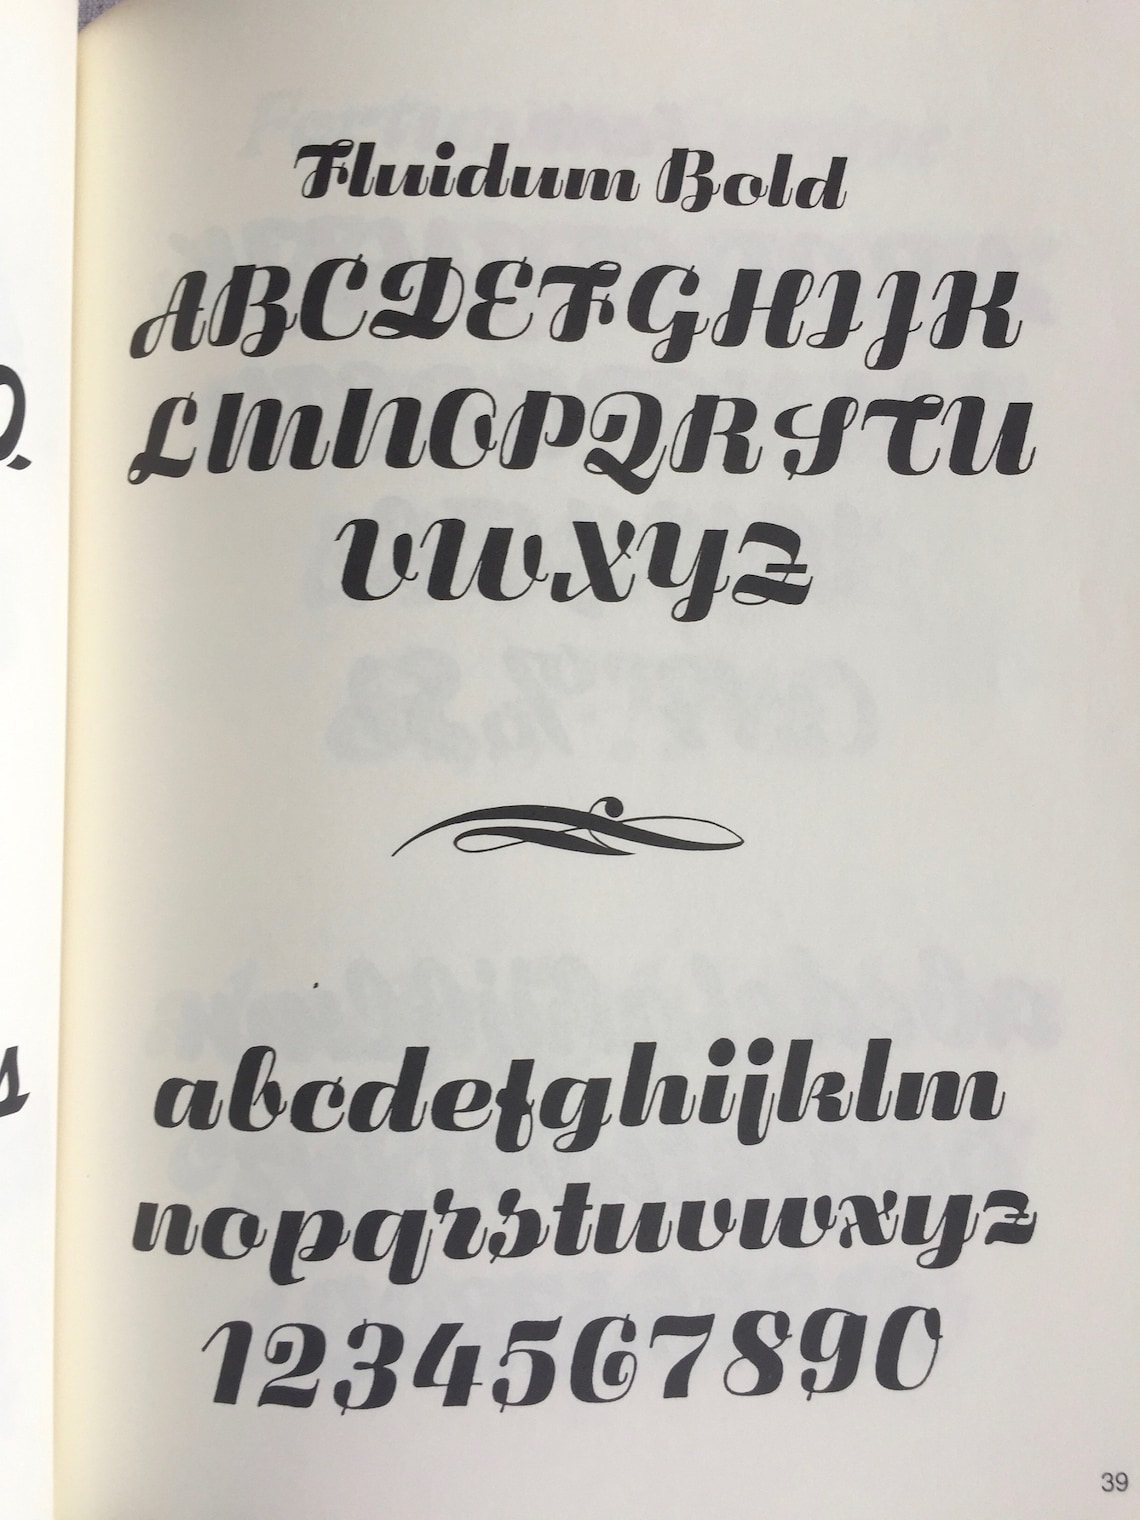 Fluidum Bold
ABCDEFGHIJK
LMNOPQRSTU
VWXYZ
abcdefghijklm
nopqrstuvwxyz
1234567890
39